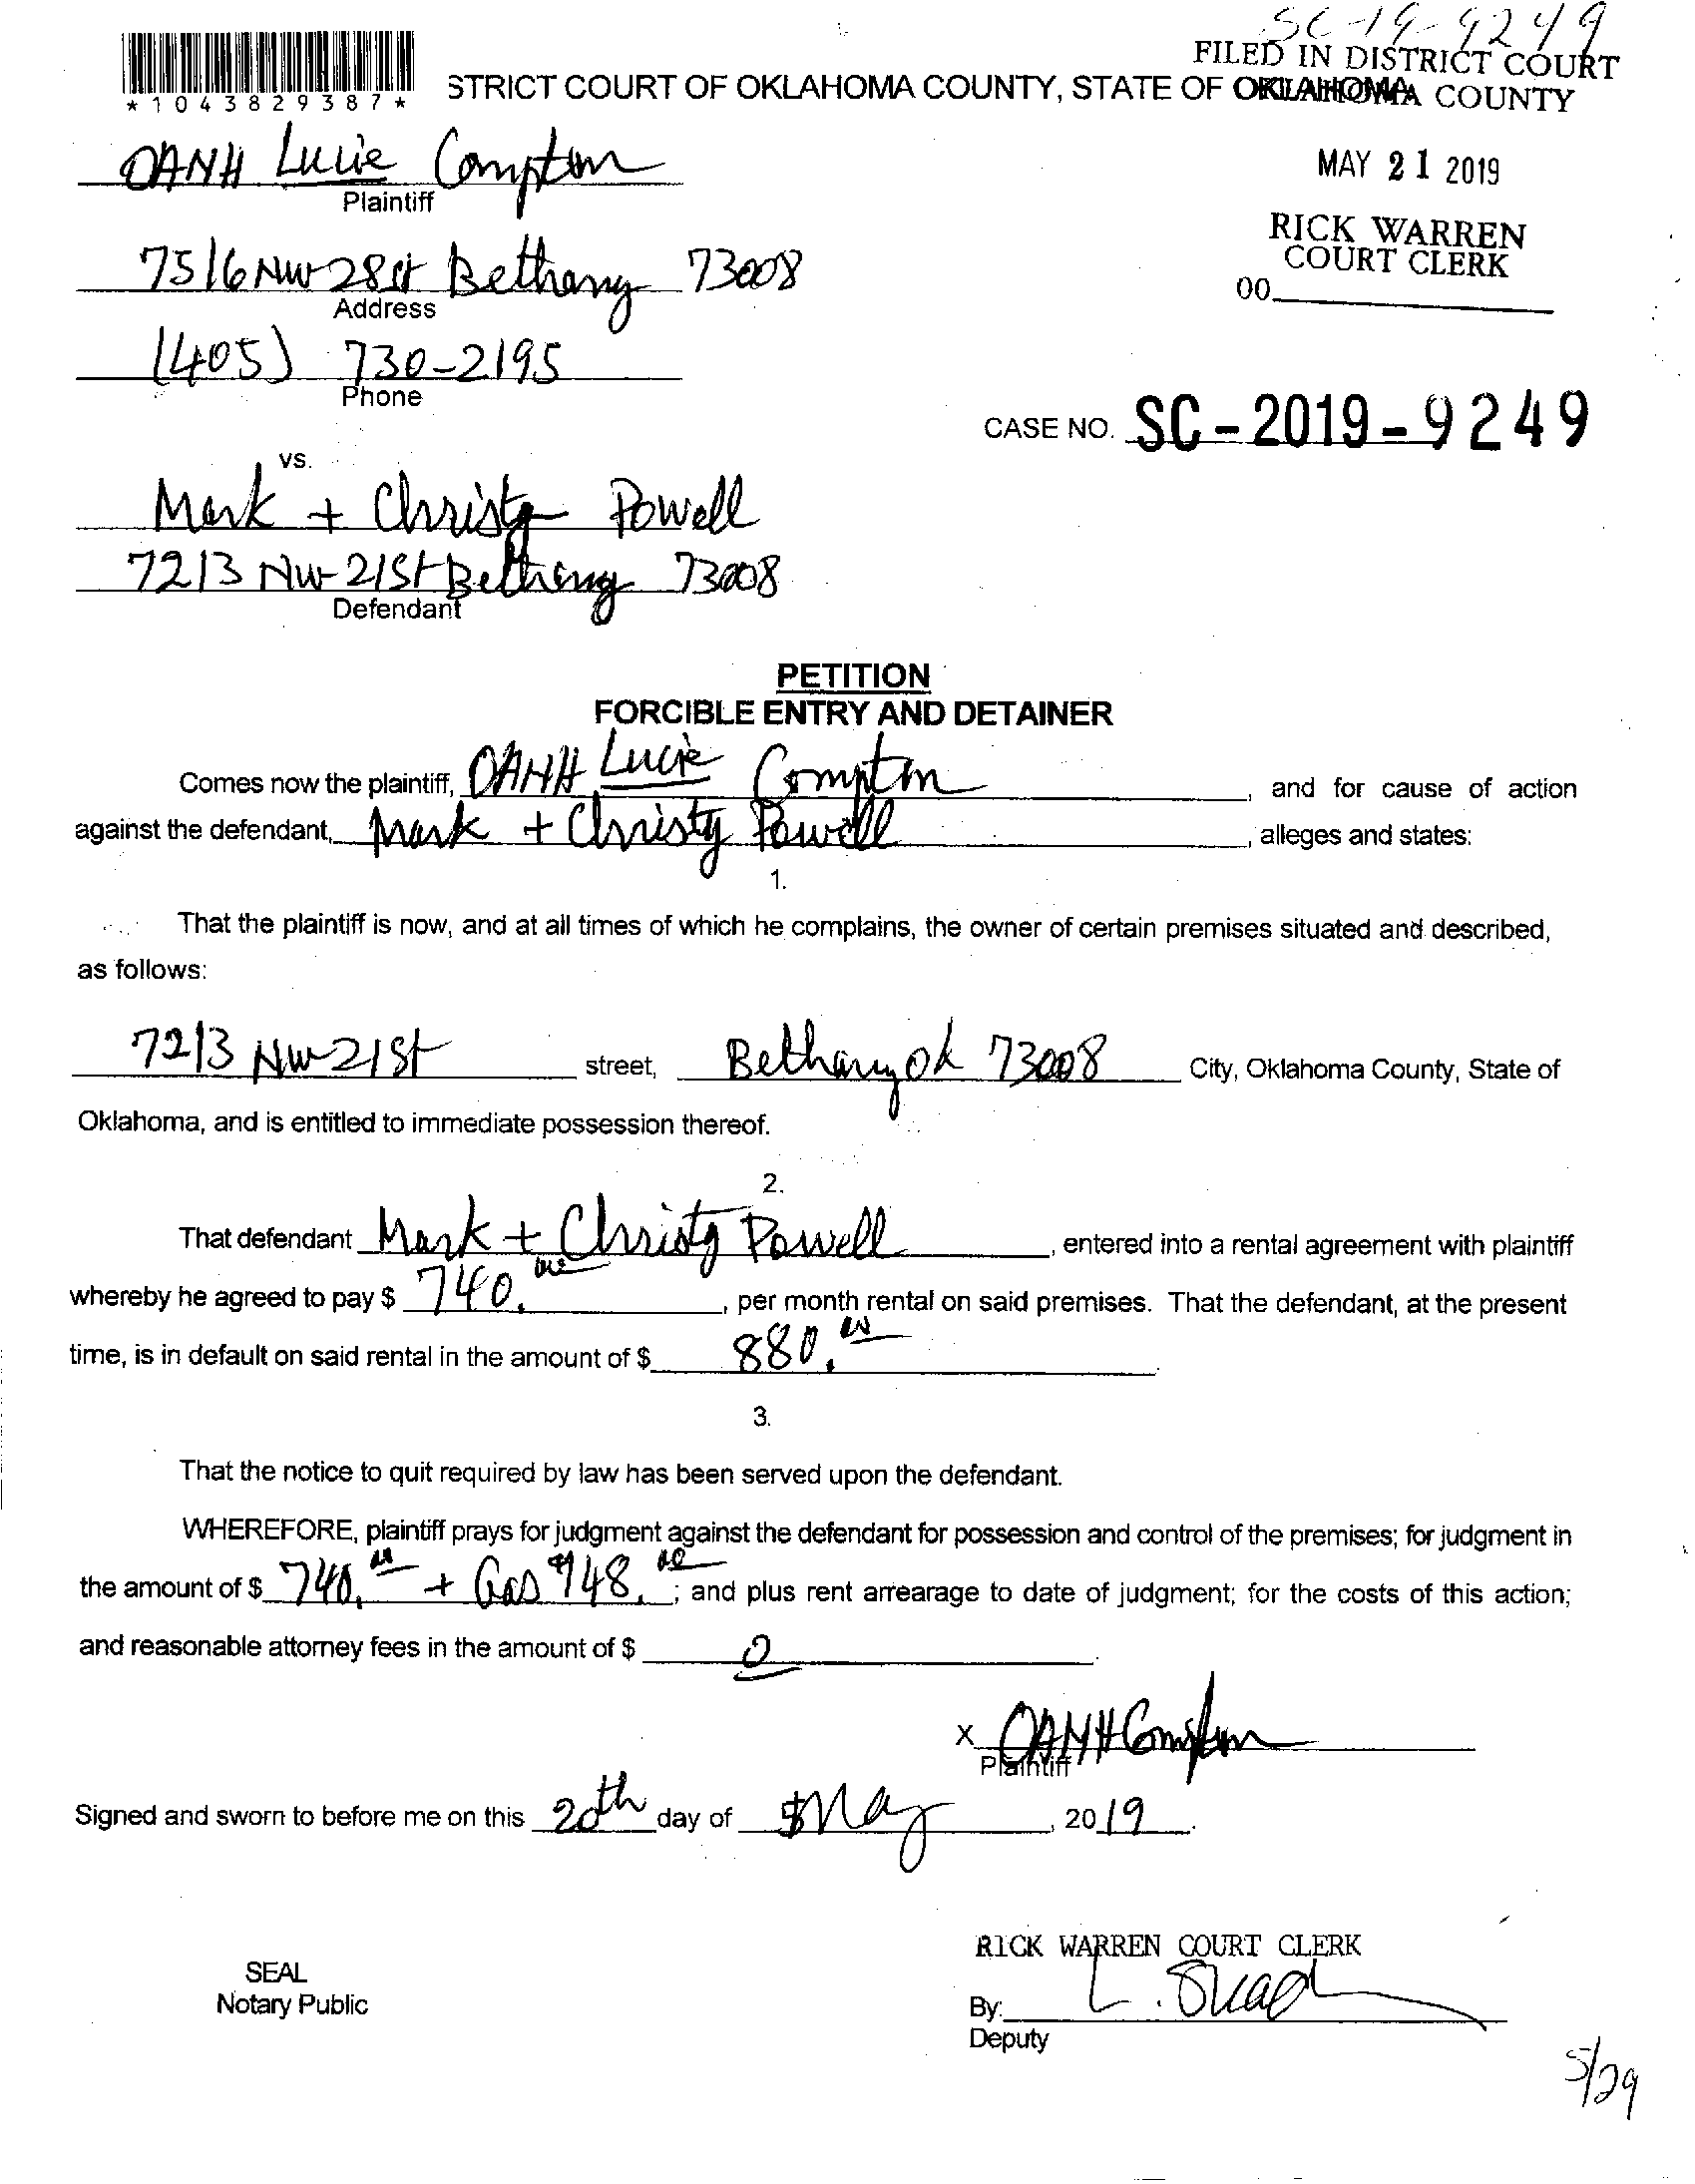 SC-19-9249
FILED IN DISTRICT COURT
OKLAHOMA COUNTY
*1043829387*
STRICT COURT OF OKLAHOMA COUNTY, STATE OF OKLAHOMA
OANH Lucie Compton
Plaintiff
MAY 21 2019
RICK WARREN
COURT CLERK
00
7516 NW 28st Bethany 73008
Address
(405) 730-2195
Phone
CASE NO. SC-2019-9249
vs.
Mark + Christy Powell
7213 NW 21st Bethany 73008
Defendant
PETITION
FORCIBLE ENTRY AND DETAINER
Comes now the plaintiff, OANH Lucie Compton, and for cause of action
against the defendant, Mark + Christy Powell, alleges and states:
1.
That the plaintiff is now, and at all times of which he complains, the owner of certain premises situated and described,
as follows:
7213 NW 21st street, Bethany ok 73008 City, Oklahoma County, State of
Oklahoma, and is entitled to immediate possession thereof.
2.
That defendant Mark + Christy Powell, entered into a rental agreement with plaintiff
whereby he agreed to pay $ 740.00, per month rental on said premises. That the defendant, at the present
time, is in default on said rental in the amount of $ 880.00.
3.
That the notice to quit required by law has been served upon the defendant.
WHEREFORE, plaintiff prays for judgment against the defendant for possession and control of the premises; for judgment in
the amount of $ 740.00 + Gas $148.00; and plus rent arrearage to date of judgment; for the costs of this action;
and reasonable attorney fees in the amount of $ 0.
X OANH Compton
Plaintiff
Signed and sworn to before me on this 20th day of May, 2019.
RICK WARREN COURT CLERK
SEAL
Notary Public
By: L.
Deputy
5/29